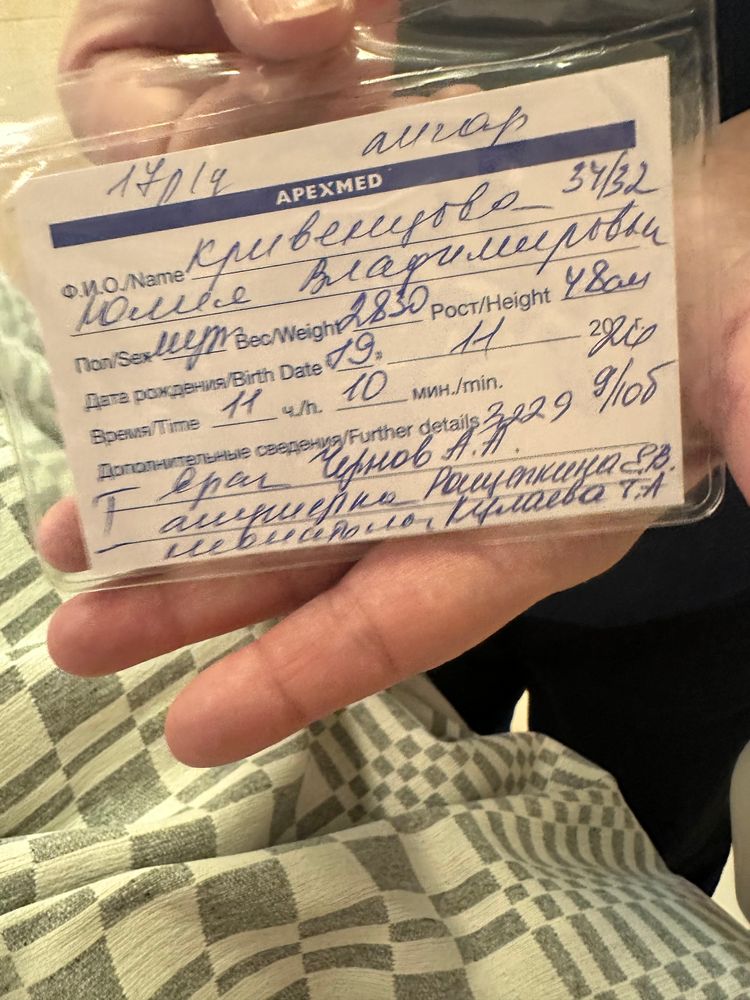 17р/ч
APEXMED
Ф.И.О./Name Кривенцова 34/32
Юлия Владимировны
Пол/Sex муж Вес/Weight 2830 Рост/Height 48см
Дата рождения/Birth Date 19. 11 20 г.
Время/Time 11 ч./h. 10 мин./min.
Дополнительные сведения/Further details 3229 9/10б
Врач Чернов А.А.
акушерка
неонатолог Кулаева Т.А